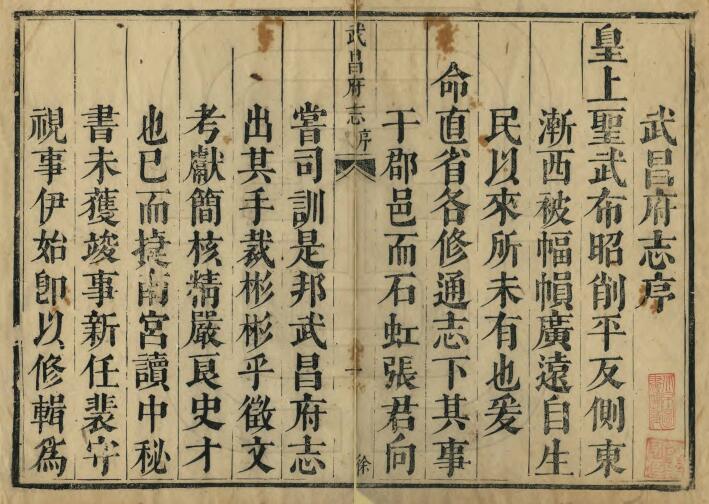 武昌府志序
皇上聖武布昭削平反側東
漸西被幅幀廣遠自生
民以來所未有也爰
命直省各修通志下其事
于郡邑而石虹張君向
武昌府志
序
一
徐
嘗司訓是邦武昌府志
出其手裁彬彬乎徵文
考獻簡核精嚴良史才
也已而捷南宮讀中秘
書未獲竣事新任裴守
視事伊始即以修輯為